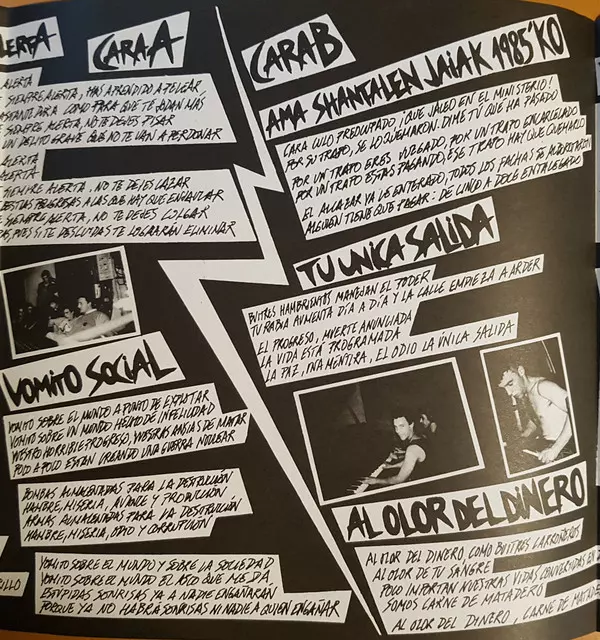 ALERTA
CARA-A
ALERTA
SIEMPRE ALERTA, HAS APRENDIDO A PELEAR,
BASTANTE DARÁ COMO PARA QUE TE JODAN MÁS
SIEMPRE ALERTA, NO TE DEJES PISAR
UN DELITO GRAVE QUE NO TE VAN A PERDONAR
ALERTA
ALERTA
SIEMPRE ALERTA, NO TE DEJES CAZAR
BESTIAS PELIGROSAS A LAS QUE HAY QUE ENJAULAR
SIEMPRE ALERTA, NO TE DEJES COLGAR
PUES SI TE DESCUIDAS TE LOGRARÁN ELIMINAR
VOMITO SOCIAL
VOMITO SOBRE EL MUNDO A PUNTO DE EXPLOTAR
VOMITO SOBRE UN MUNDO HECHO DE INFELICIDAD
VUESTRO HORRIBLE PROGRESO, VUESTRAS ANSIAS DE MATAR
POLO A POLO ESTAN CREANDO UNA GUERRA NUCLEAR
BOMBAS ALMACENADAS PARA LA DESTRUCCIÓN
HAMBRE, MISERIA, AVANCE Y PRODUCCIÓN
ARMAS ALMACENADAS PARA LA DESTRUCCIÓN
HAMBRE, MISERIA, ODIO Y CORRUPCIÓN
VOMITO SOBRE EL MUNDO Y SOBRE LA SOCIEDAD
VOMITO SOBRE EL MUNDO EL ASCO QUE ME DA
ESTUPIDAS SONRISAS YA A NADIE ENGAÑARAN
PORQUE YA NO HABRÁ SONRISAS NI NADIE A QUIEN ENGAÑAR
CARA B
AMA SHANTALEN JAIAK 1985'KO
CARA CULO PREOCUPADO ¡QUE JALEO EN EL MINISTERIO!
POR SU TRAPO, SE LO QUEMARON. DIME TÚ QUE HA PASADO
POR UN TRAPO ERES JUZGADO, POR UN TRAPO ENCARCELADO
POR UN TRAPO ESTÁS PAGANDO, ESE TRAPO HAY QUE QUEMARLO
EL ALCAZAR YA SE HA ENTERADO, TODOS LOS FACHAS SE ALBOROTARON
ALGUIEN TIENE QUE PAGAR: DE UNO A DOCE ENTALEGADO
TU UNICA SALIDA
BUITRES HAMBRIENTOS MANEJAN EL PODER
TU RABIA AUMENTA DÍA A DÍA Y LA CALLE EMPIEZA A ARDER
EL PROGRESO, MUERTE ANUNCIADA
LA VIDA ESTÁ PROGRAMADA
LA PAZ, FINA MENTIRA, EL ODIO LA ÚNICA SALIDA
AL OLOR DEL DINERO
AL OLOR DEL DINERO, COMO BUITRES CARROÑEROS
AL OLOR DE TU SANGRE
POCO IMPORTAN NUESTRAS VIDAS CONVERTIDAS EN
SOMOS CARNE DE MATADERO
AL OLOR DEL DINERO, CARNE DE MATADE